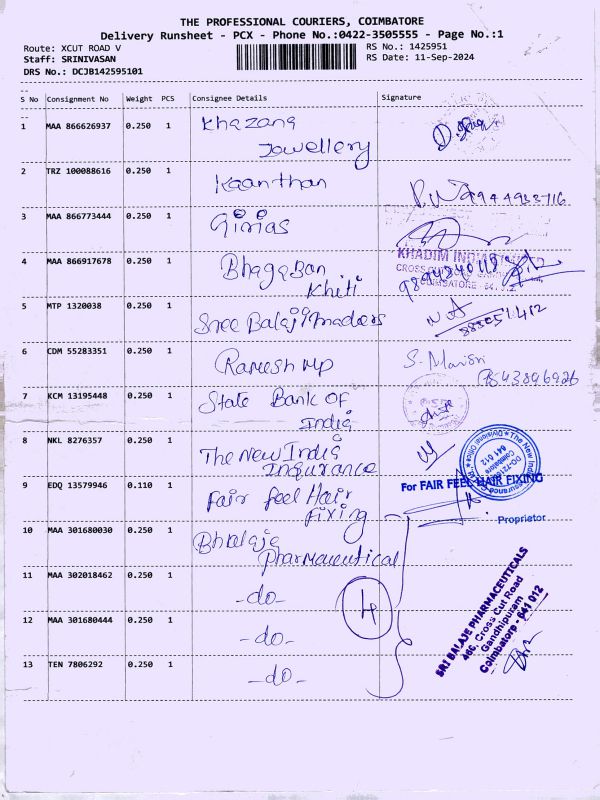 THE PROFESSIONAL COURIERS, COIMBATORE
Delivery Runsheet - PCX - Phone No.:0422-3505555 - Page No.:1
Route: XCUT ROAD V
RS No.: 1425951
Staff: SRINIVASAN
RS Date: 11-Sep-2024
DRS No.: DCJB142595101
S No Consignment No Weight PCS Consignee Details Signature
1 MAA 866626937 0.250 1 Khazana
Jowellery
2 TRZ 100088616 0.250 1 Kaanthan
9944933716
3 MAA 866773444 0.250 1 Girias
KHADIM INDIA
COIMBATORE
4 MAA 866917678 0.250 1 Bhagaban
Khiti
9894240118
5 MTP 1320038 0.250 1 Sree Balaji Traders
6 CDM 55283351 0.250 1 Ramesh mp
7 KCM 13195448 0.250 1 State Bank OF
India
8 NKL 8276357 0.250 1 The New India
Insurance
The New India
Divisional Office
Coimbatore
641 012
9 EDQ 13579946 0.110 1 Fair feel Hair
Fixing
For FAIR FEEL HAIR FIXING
Proprietor
10 MAA 301680030 0.250 1 Bhalaje
Pharmaceutical
11 MAA 302018462 0.250 1 -do-
4
12 MAA 301680444 0.250 1 -do-
13 TEN 7806292 0.250 1 -do-
SRI BALAJE PHARMACEUTICALS
466, Cross Cut Road
Gandhipuram
Coimbatore - 641 012